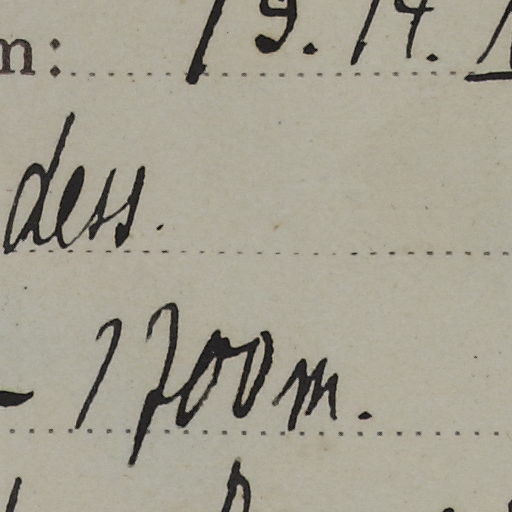 m: 13. 14.
dess.
- 1700 m.